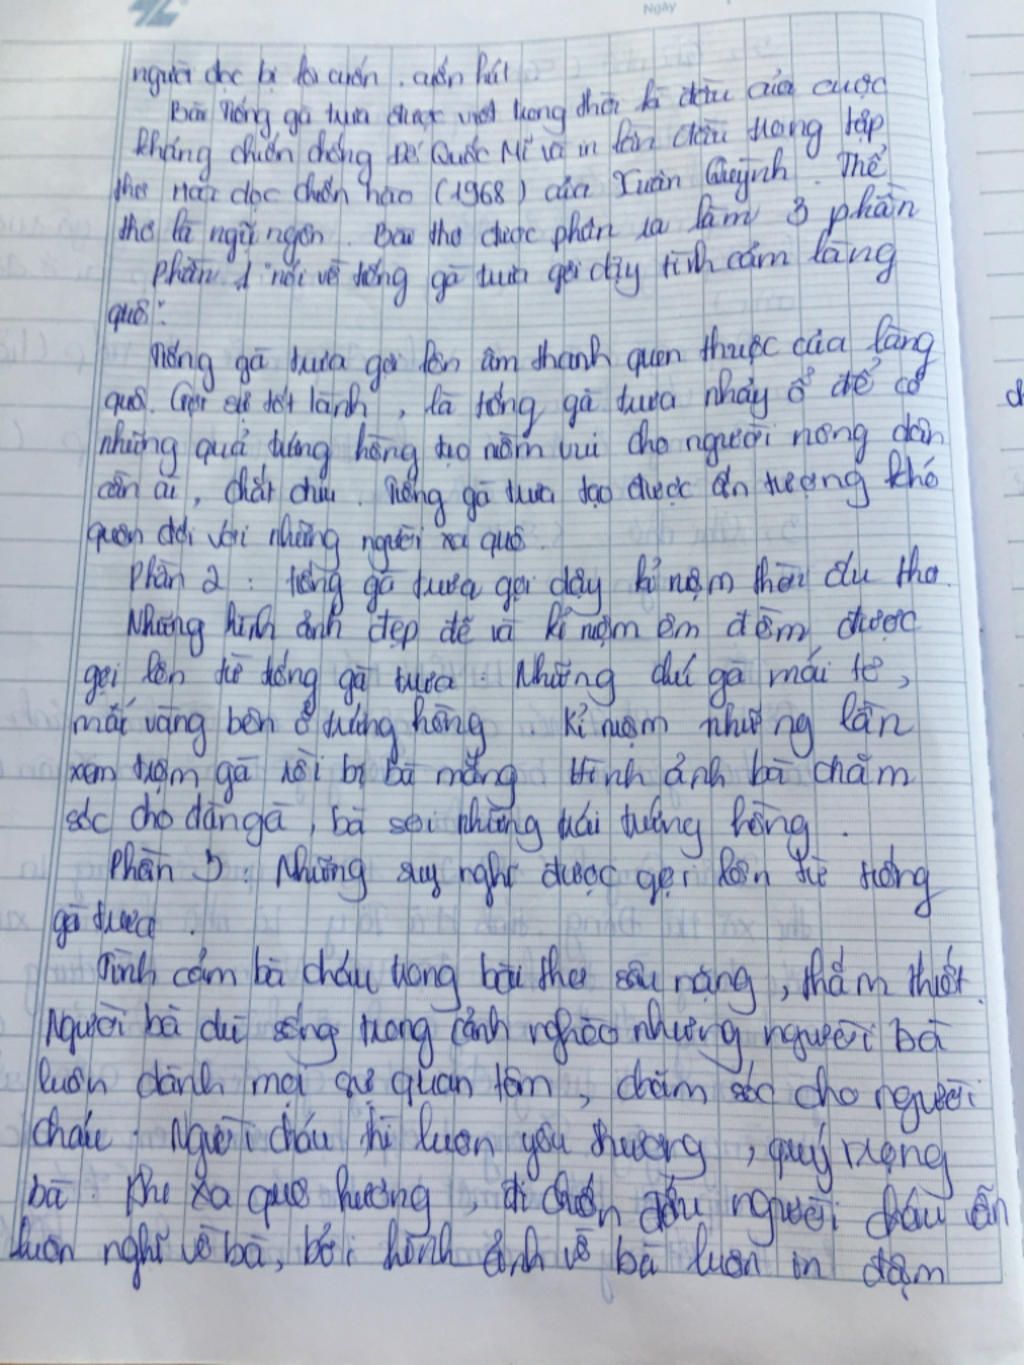 Ngày
người đọc bị lôi cuốn, cuốn hút
Bài Tiếng gà trưa được viết trong thời kì đầu của cuộc
kháng chiến chống Đế Quốc Mĩ và in lần đầu trong tập
thơ Hoa dọc chiến hào (1968) của Xuân Quỳnh. Thể
thơ là ngũ ngôn. Bài thơ được phân ra làm 3 phần
phần 1 "nói về tiếng gà trưa gợi dậy tình cảm làng
quê":
Tiếng gà trưa gợi lên âm thanh quen thuộc của làng
quê. Gợi sự tốt lành, là tiếng gà trưa nhảy ổ để có
những quả trứng hồng tạo niềm vui cho người nông dân
cần cù, chắt chiu. Tiếng gà trưa tạo được ấn tượng khó
quên đối với những người xa quê.
Phần 2: tiếng gà trưa gợi dậy kỉ niệm thời ấu thơ.
Những hình ảnh đẹp đẽ và kỉ niệm êm đềm được
gợi lên từ tiếng gà trưa. Những chú gà mái tơ,
mái vàng bên ổ trứng hồng. Kỉ niệm những lần
xem trộm gà rồi bị bà mắng. Hình ảnh bà chăm
sóc cho đàn gà, bà soi những trái trứng hồng.
Phần 3: Những suy nghĩ được gợi lên từ tiếng
gà trưa.
Tình cảm bà cháu trong bài thơ sâu nặng, thắm thiết.
Người bà dù sống trong cảnh nghèo nhưng người bà
luôn dành mọi sự quan tâm, chăm sóc cho người
cháu. Người cháu thì luôn yêu thương, quý trọng
bà. Khi xa quê hương, đi chiến đấu người cháu vẫn
luôn nghĩ về bà, bởi hình ảnh về bà luôn in đậm